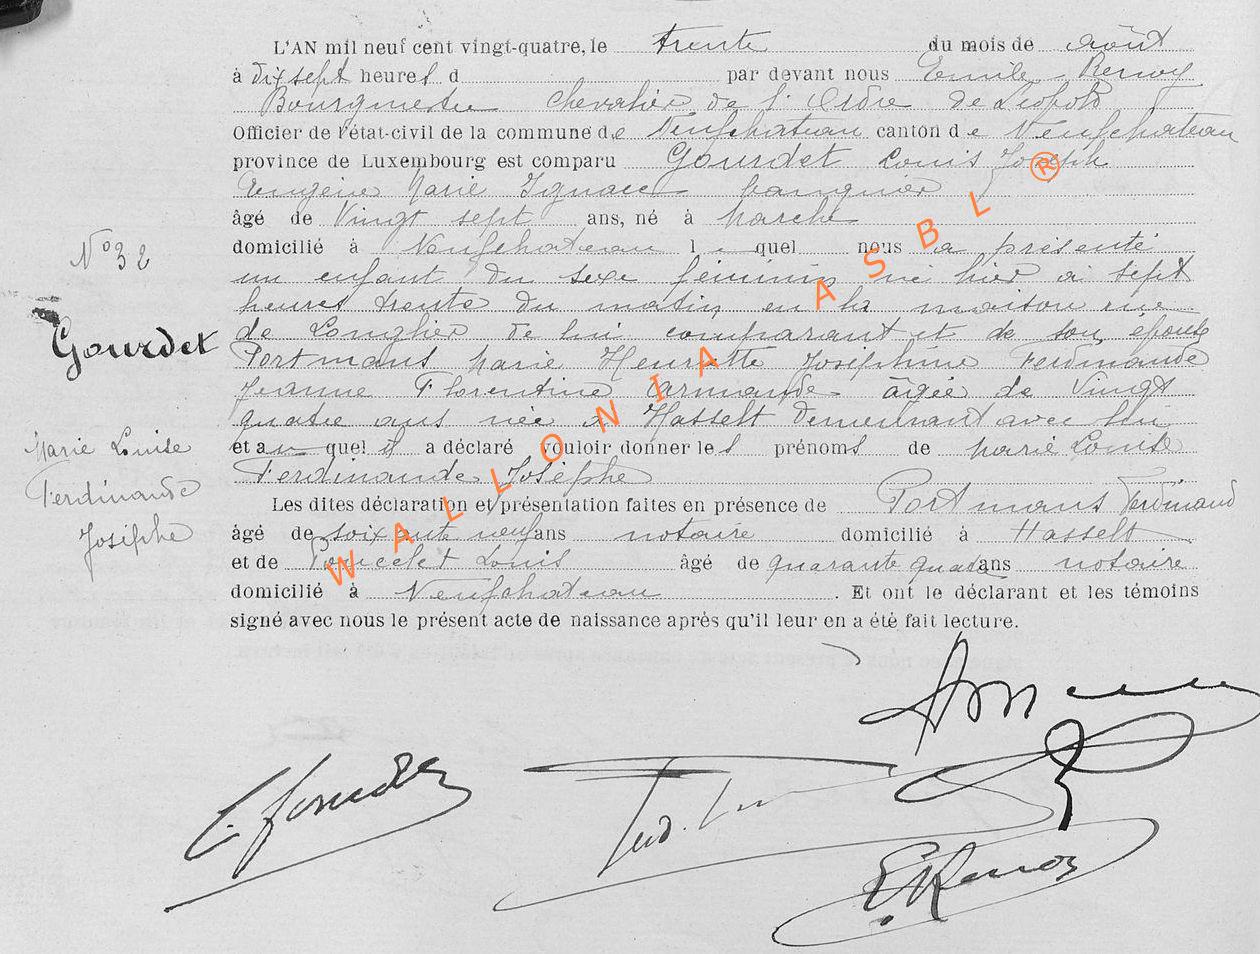 L'AN mil neuf cent vingt-quatre, le trente du mois de août
à dix sept heures d par devant nous Emile Renoy
Bourgmestre Chevalier de l'Ordre de Léopold
Officier de l'état-civil de la commune de Neufchateau canton de Neufchateau
province de Luxembourg est comparu Gourdet Louis Joseph
Eugène Marie Ignace banquier
âgé de Vingt sept ans, né à Marche
domicilié à Neufchateau l quel nous a présenté
un enfant du sexe féminin né hier à sept
heures trente du matin en la maison rue
de Longlier de lui comparant et de son épouse
Portmans Marie Henriette Joséphine Ferdinande
Jeanne Florentine Armande âgée de Vingt
quatre ans née à Hasselt demeurant avec lui
et au quel il a déclaré vouloir donner les prénoms de Marie Louise
Ferdinande Josèphe
Les dites déclaration et présentation faites en présence de Portmans Ferdinand
âgé de soixante neuf ans notaire domicilié à Hasselt
et de Poncelet Louis âgé de quarante quatre ans notaire
domicilié à Neufchateau. Et ont le déclarant et les témoins
signé avec nous le présent acte de naissance après qu'il leur en a été fait lecture.
N° 32
Gourdet
Marie Louise
Ferdinande
Josèphe
WALLONIA ASBL ®
L. Gourdet
E. Renoy